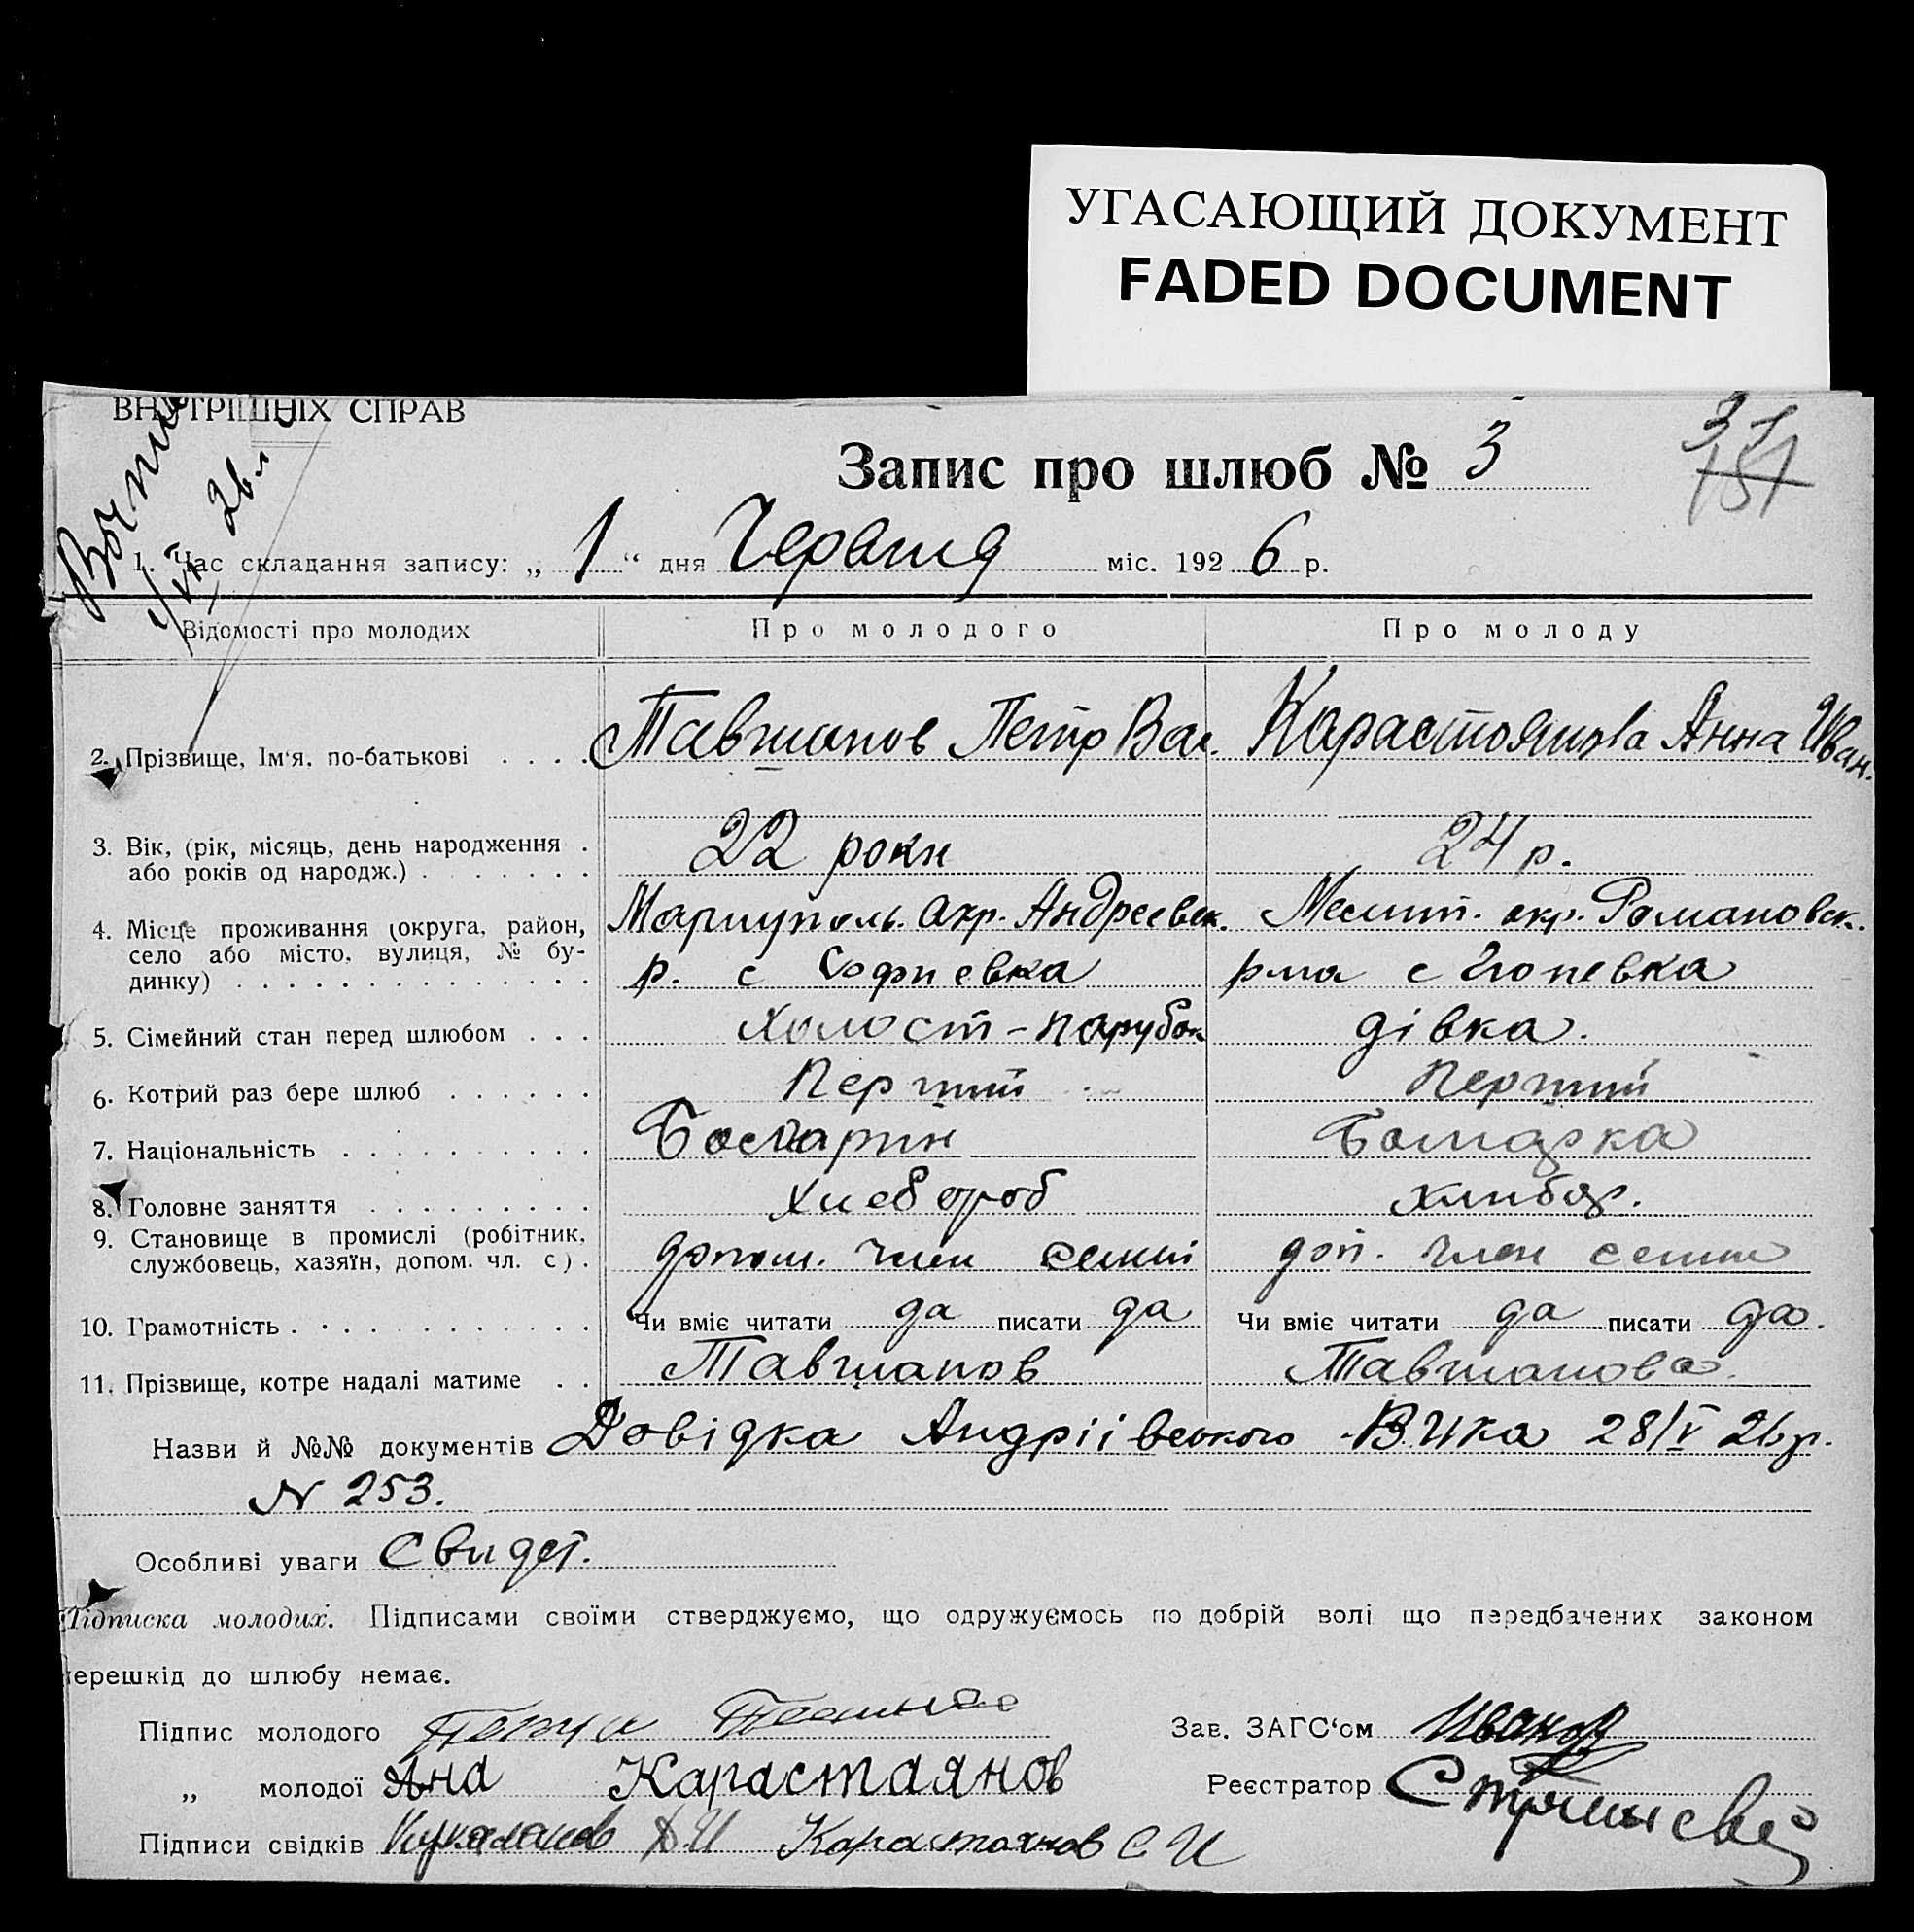 УГАСАЮЩИЙ ДОКУМЕНТ
FADED DOCUMENT
ВНУТРІШНІХ СПРАВ
Запис про шлюб № 3
31
151
1. Час складання запису: „ 1 “ дня Червня міс. 1926 р.
Відомості про молодих
Про молодого
Про молоду
2. Прізвище, Ім'я, по-батькові
Тавшанов Петр Вас.
Карастоянова Анна Иван.
3. Вік, (рік, місяць, день народження
або років од народж.)
22 роки
24 р.
4. Місце проживання (округа, район,
село або місто, вулиця, № бу-
динку)
Мариуполь. окр. Андреевск.
р. с Софиевка
Мелит. окр. Романовск.
р-на с
5. Сімейний стан перед шлюбом
холост - парубок
дівка.
6. Котрий раз бере шлюб
Перший
Перший
7. Національність
Болгарин
Болгарка
8. Головне заняття
Хлебороб
хлибор.
9. Становище в промислі (робітник,
службовець, хазяїн, допом. чл. с).
допом. член семьі
доп. член семьи
10. Грамотність
Чи вміє читати да писати да
Чи вміє читати да писати да.
11. Прізвище, котре надалі матиме
Тавшанов
Тавшанова.
Назви й №№ документів Довідка Андріівського ВИКа 28/V 26 р.
N 253.
Особливі уваги Свидет.
Підписка молодих. Підписами своїми стверджуємо, що одружуємось по добрій волі що передбачених законом
перешкід до шлюбу немає.
Підпис молодого
Зав. ЗАГС'ом Иванов
„ молодої Ана Карастаянов
Реєстратор
Підписи свідків Д.И Карастоянов С И